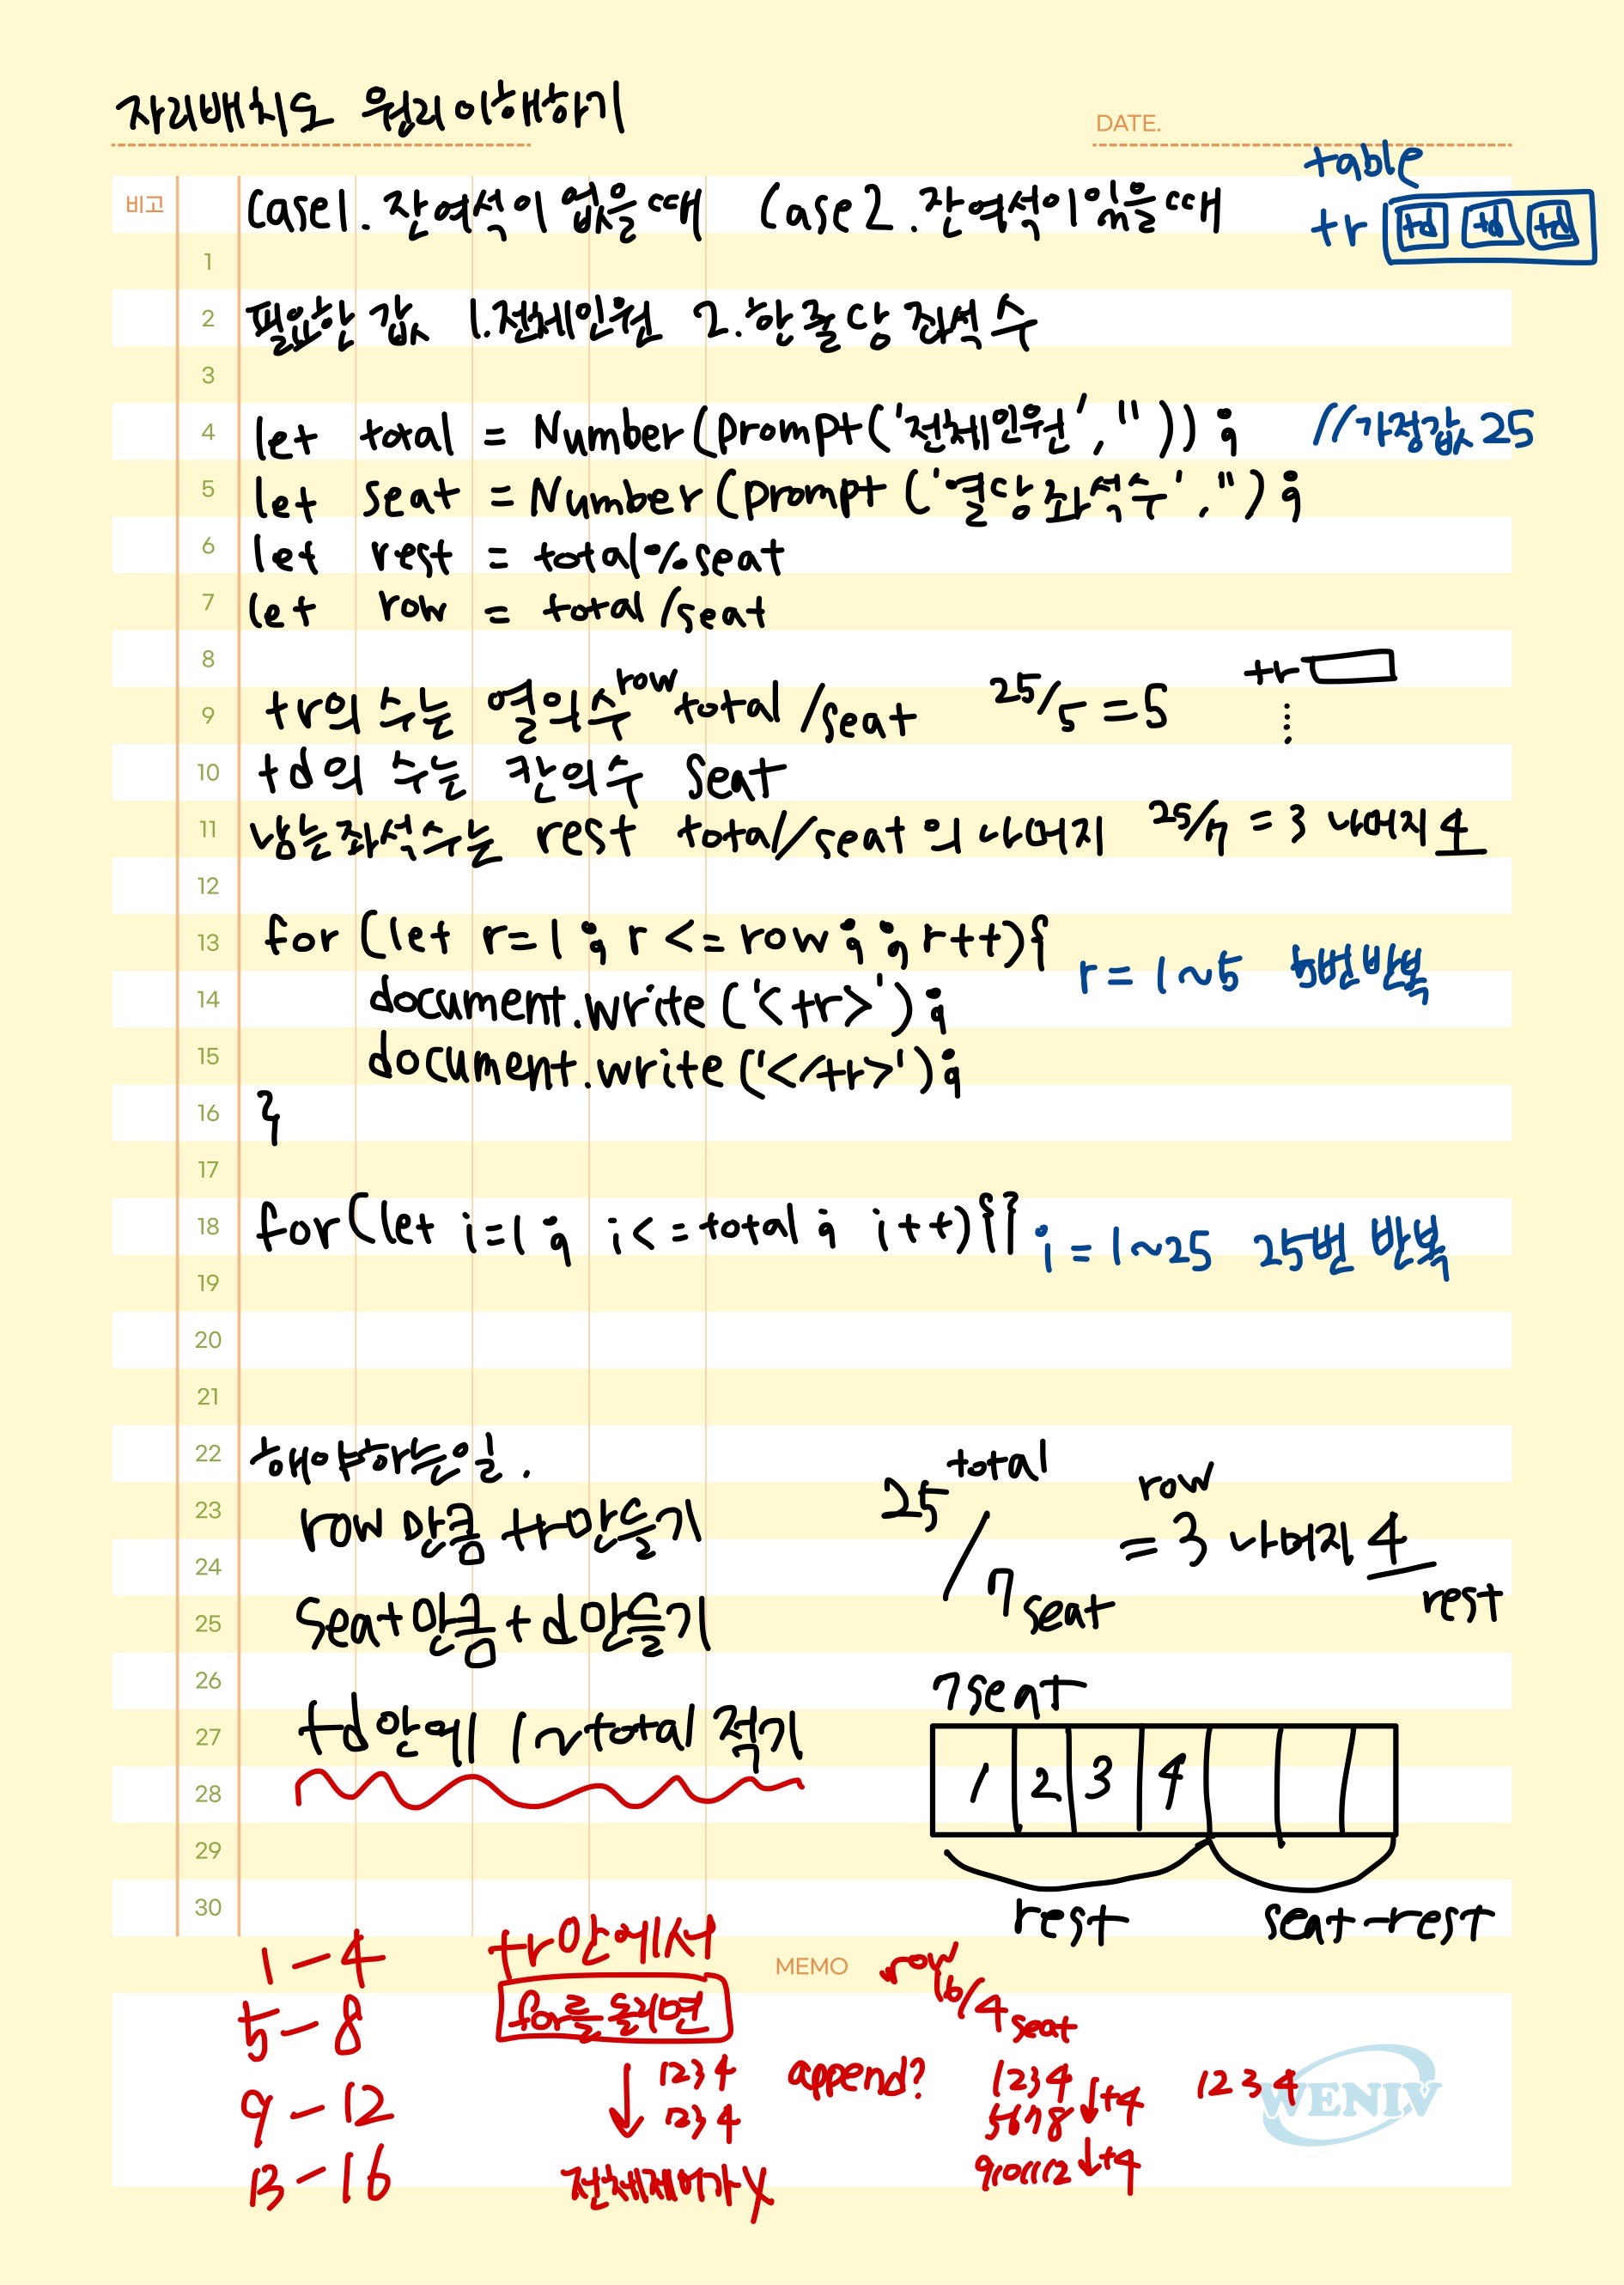 자리배치도 원리이해하기
DATE.
table
tr td td td
비고
Case1. 잔여석이 없을때 Case2. 잔여석이있을때
1
2 필요한 값 1.전체인원 2.한줄당 좌석 수
3
4 let total = Number(prompt('전체인원','')); //가정값 25
5 let seat = Number(prompt('열당좌석수','');
6 let rest = total%seat
7 let row = total/seat
8 tr
9 tr의 수는 열의수 row total/seat 25/5=5
10 td의 수는 칸의수 Seat
11 남는좌석수는 rest total/seat의 나머지 25/7=3 나머지 4
12
13 for (let r=1; r<=row; ; r++){
r=1~5 5번반복
14 document.write('<tr>');
15 document.write('</tr>');
16 }
17
18 for(let i=1; i<=total; i++){}
i=1~25 25번 반복
19
20
21
22 해야하는일.
23 row 만큼 tr만들기
24
25 seat만큼 td만들기
26
27 td안에 1~total 적기
28
29
30
25 total / 7 seat = row 3 나머지 4 rest
7seat
1 2 3 4
rest seat-rest
MEMO
1-4
5-8
9-12
13-16
tr안에서
for를 돌리면
1234
1234
전체제어가X
append?
row 16/4 seat
1234
5678 +4
9101112 +4
1234
WENIV